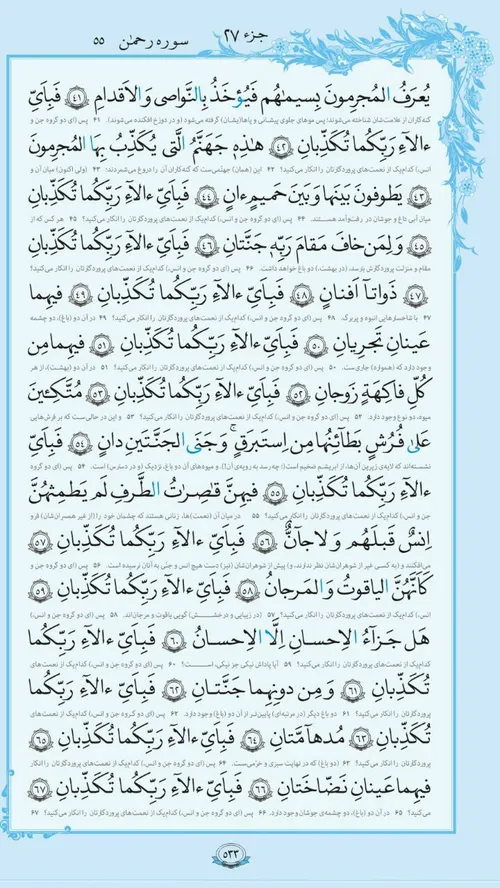 جزء ۲۷
سوره رحمٰن ۵۵
یُعرَفُ المُجرِمونَ بِسیمٰهُم فَیُؤخَذُ بِالنَّواصی وَالاَقدامِ ﴿۴۱﴾ فَبِاَیِّ
گنه‌کاران از علامت‌شان شناخته می‌شوند؛ پس موهای جلوی پیشانی و پاها(یشان) گرفته می‌شود (و در دوزخ افکنده می‌شوند). ۴۱ پس (ای دو گروه جن و
ءالآءِ رَبِّکُما تُکَذِّبانِ ﴿۴۲﴾ هٰذِهٖ جَهَنَّمُ الَّتی یُکَذِّبُ بِهَا المُجرِمونَ
انس،) کدام‌یک از نعمت‌های پروردگارتان را انکار می‌کنید؟ ۴۲ این (همان) جهنّمی‌ست که گنه‌کاران آن را دروغ می‌شمردند؛ ۴۳ (ولی اکنون) میان آن و
﴿۴۳﴾ یَطوفونَ بَینَها وَ بَینَ حَمیمٍ ءانٍ ﴿۴۴﴾ فَبِاَیِّ ءالآءِ رَبِّکُما تُکَذِّبانِ
میان آبی داغ و جوشان در رفت‌و‌آمد هستند. ۴۴ پس (ای دو گروه جن و انس،) کدام‌یک از نعمت‌های پروردگارتان را انکار می‌کنید؟ ۴۵ هر کس که از
﴿۴۵﴾ وَ لِمَن خافَ مَقامَ رَبِّهٖ جَنَّتانِ ﴿۴۶﴾ فَبِاَیِّ ءالآءِ رَبِّکُما تُکَذِّبانِ
مقام و منزلت پروردگارش بترسد، (در بهشت،) دو باغ خواهد داشت. ۴۶ پس (ای دو گروه جن و انس،) کدام‌یک از نعمت‌های پروردگارتان را انکار می‌کنید؟
﴿۴۷﴾ ذَواتآ اَفنانٍ ﴿۴۸﴾ فَبِاَیِّ ءالآءِ رَبِّکُما تُکَذِّبانِ ﴿۴۹﴾ فیهِما
۴۷ با شاخسارهایی انبوه و پربرگ. ۴۸ پس (ای دو گروه جن و انس،) کدام‌یک از نعمت‌های پروردگارتان را انکار می‌کنید؟ ۴۹ در آن دو (باغ)، دو چشمه
عَینانِ تَجرِیانِ ﴿۵۰﴾ فَبِاَیِّ ءالآءِ رَبِّکُما تُکَذِّبانِ ﴿۵۱﴾ فیهِما مِن
وجود دارد که (همواره) جاری‌ست. ۵۰ پس (ای دو گروه جن و انس،) کدام‌یک از نعمت‌های پروردگارتان را انکار می‌کنید؟ ۵۱ در آن دو (بهشت)، از هر
کُلِّ فاکِهَةٍ زَوجانِ ﴿۵۲﴾ فَبِاَیِّ ءالآءِ رَبِّکُما تُکَذِّبانِ ﴿۵۳﴾ مُتَّکِـٔینَ
میوه، دو نوع وجود دارد. ۵۲ پس (ای دو گروه جن و انس،) کدام‌یک از نعمت‌های پروردگارتان را انکار می‌کنید؟ ۵۳ و این در حالی‌ست که بر فرش‌هایی
عَلیٰ فُرُشٍ بَطآئِنُها مِن اِستَبرَقٍ ۚ وَ جَنَی الجَنَّتَینِ دانٍ ﴿۵۴﴾ فَبِاَیِّ
نشسته‌اند که لایه‌ی زیرین آن‌ها، از ابریشم ضخیم است؛ (چه رسد به رویه‌ی آن!)، و میوه‌های آن دو باغ، نزدیک (و در دسترس) است. ۵۴ پس (ای دو گروه
ءالآءِ رَبِّکُما تُکَذِّبانِ ﴿۵۵﴾ فیهِنَّ قٰصِرٰتُ الطَّرفِ لَم یَطمِثهُنَّ
جن و انس،) کدام‌یک از نعمت‌های پروردگارتان را انکار می‌کنید؟ ۵۵ در میان آن (نعمت)ها، زنانی هستند که چشمان خود را (از غیر همسران‌شان) فرو
اِنسٌ قَبلَهُم وَ لا جآنٌّ ﴿۵۶﴾ فَبِاَیِّ ءالآءِ رَبِّکُما تُکَذِّبانِ ﴿۵۷﴾
می‌افکنند (و به کسی غیر از شوهران‌شان نظر ندارند، و) پیش از شوهران‌شان (نیز) دست هیچ انس و جنّی به آنان نرسیده است. ۵۶ پس (ای دو گروه جن و
کَاَنَّهُنَّ الیاقوتُ وَ المَرجانُ ﴿۵۸﴾ فَبِاَیِّ ءالآءِ رَبِّکُما تُکَذِّبانِ ﴿۵۹﴾
انس،) کدام‌یک از نعمت‌های پروردگارتان را انکار می‌کنید؟ ۵۷ (در زیبایی و درخشش،) گویی یاقوت و مرجان‌اند. ۵۸ پس (ای دو گروه جن و انس،) کدام‌یک از نعمت‌های پروردگارتان را انکار می‌کنید؟
هَل جَزآءُ الاِحسانِ اِلَّا الاِحسانُ ﴿۶۰﴾ فَبِاَیِّ ءالآءِ رَبِّکُما
کدام‌یک از نعمت‌های پروردگارتان را انکار می‌کنید؟ ۵۹ آیا پاداش نیکی جز نیکی، است؟ ۶۰ پس (ای دو گروه جن و انس،) کدام‌یک از نعمت‌های
تُکَذِّبانِ ﴿۶۱﴾ وَ مِن دونِهِما جَنَّتانِ ﴿۶۲﴾ فَبِاَیِّ ءالآءِ رَبِّکُما
پروردگارتان را انکار می‌کنید؟ ۶۱ دو باغ دیگر (در مرتبه‌ای) پایین‌تر از آن دو (باغ) وجود دارد. ۶۲ پس (ای دو گروه جن و انس،) کدام‌یک از نعمت‌های
تُکَذِّبانِ ﴿۶۳﴾ مُدهآمَّتانِ ﴿۶۴﴾ فَبِاَیِّ ءالآءِ رَبِّکُما تُکَذِّبانِ ﴿۶۵﴾
پروردگارتان را انکار می‌کنید؟ ۶۳ (دو باغ) که در نهایت سبزی و خرّمی‌ست. ۶۴ پس (ای دو گروه جن و انس،) کدام‌یک از نعمت‌های پروردگارتان را انکار
فیهِما عَینانِ نَضّاخَتانِ ﴿۶۶﴾ فَبِاَیِّ ءالآءِ رَبِّکُما تُکَذِّبانِ ﴿۶۷﴾
می‌کنید؟ ۶۵ در آن دو (باغ)، دو چشمه‌ی جوشان وجود دارد. ۶۶ پس (ای دو گروه جن و انس،) کدام‌یک از نعمت‌های پروردگارتان را انکار می‌کنید؟ ۶۷
۵۳۳